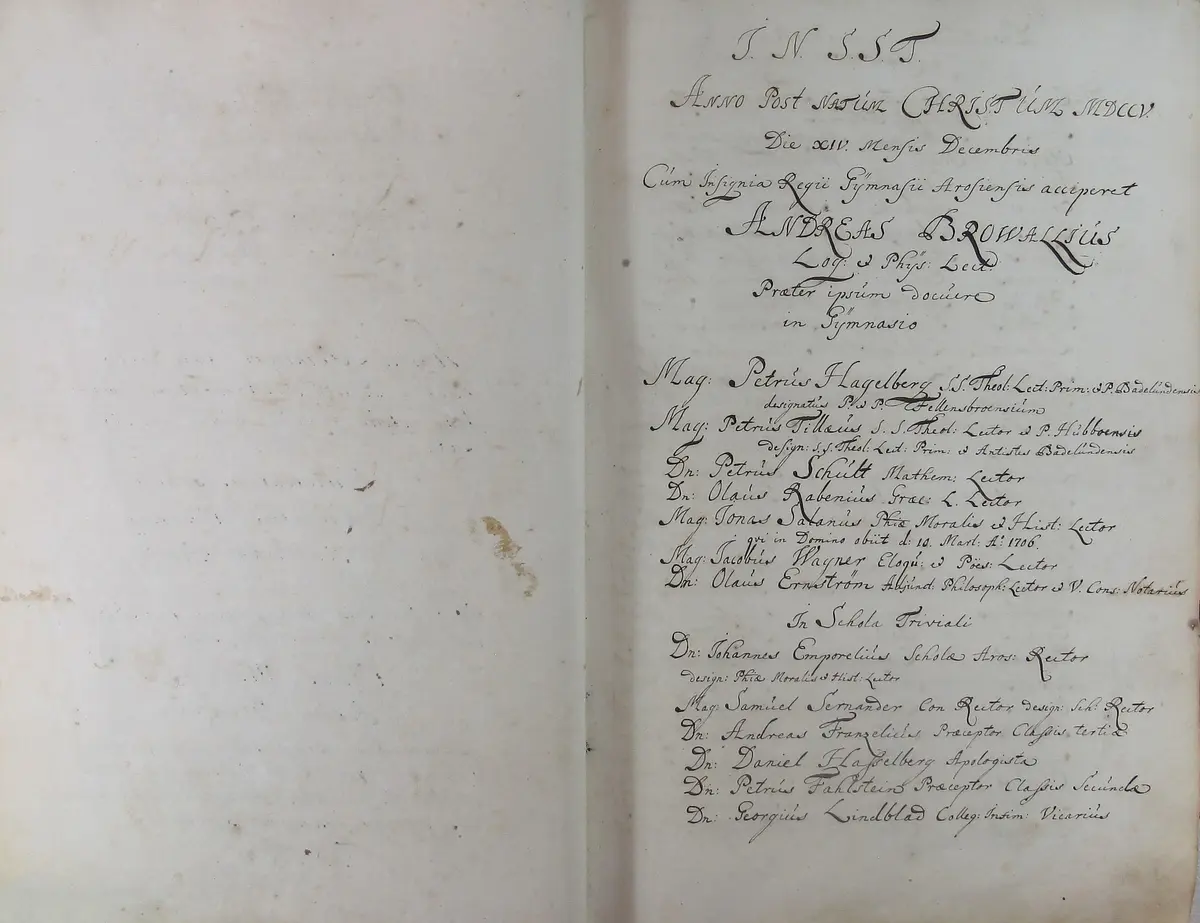 I. N. S. S. T.
ANNO POST NATUM CHRISTUM MDCCV.
Die XIV. Mensis Decembris
Cùm Insignia Regii Gÿmnasii Arosiensis acciperet
ANDREAS BROWALLIUS
Log: & Phÿs: Lect:
Præter ipsum docuere
in Gÿmnasio
Mag: Petrus Hagelberg S.S. Theol: Lect: Prim: & P. Badelundensis
designatus P. & P. Fellensbroensium
Mag: Petrus Tillæus S. S. Theol: Lector & P. Hubboensis
design: S.S. Theol: Lect: Prim: & Antistes Badelundensis
Dn: Petrus Schult Mathem: Lector
Dn: Olaus Rabenius Græc: L. Lector
Mag: Jonas Salanus Phiæ Moralis & Hist: Lector
qvi in Domino obiit d: 10. Mart: Aº 1706.
Mag: Jacobus Wagner Eloqu: & Pöes: Lector
Dn: Olaus Ernström Adjunct: Philosoph: Lector & V. Cons: Notarius
In Schola Triviali
Dn: Johannes Emporelius Scholæ Aros: Rector
design: Phiæ Moralis & Hist: Lector
Mag: Samuel Sernander Con Rector design: Sch: Rector
Dn: Andreas Franzelius Præceptor Classis tertiæ
Dn: Daniel Hasselberg Apologista
Dn: Petrus Fahlstein Præceptor Classis Secundæ
Dn: Georgius Lindblad Colleg: Infim: Vicarius